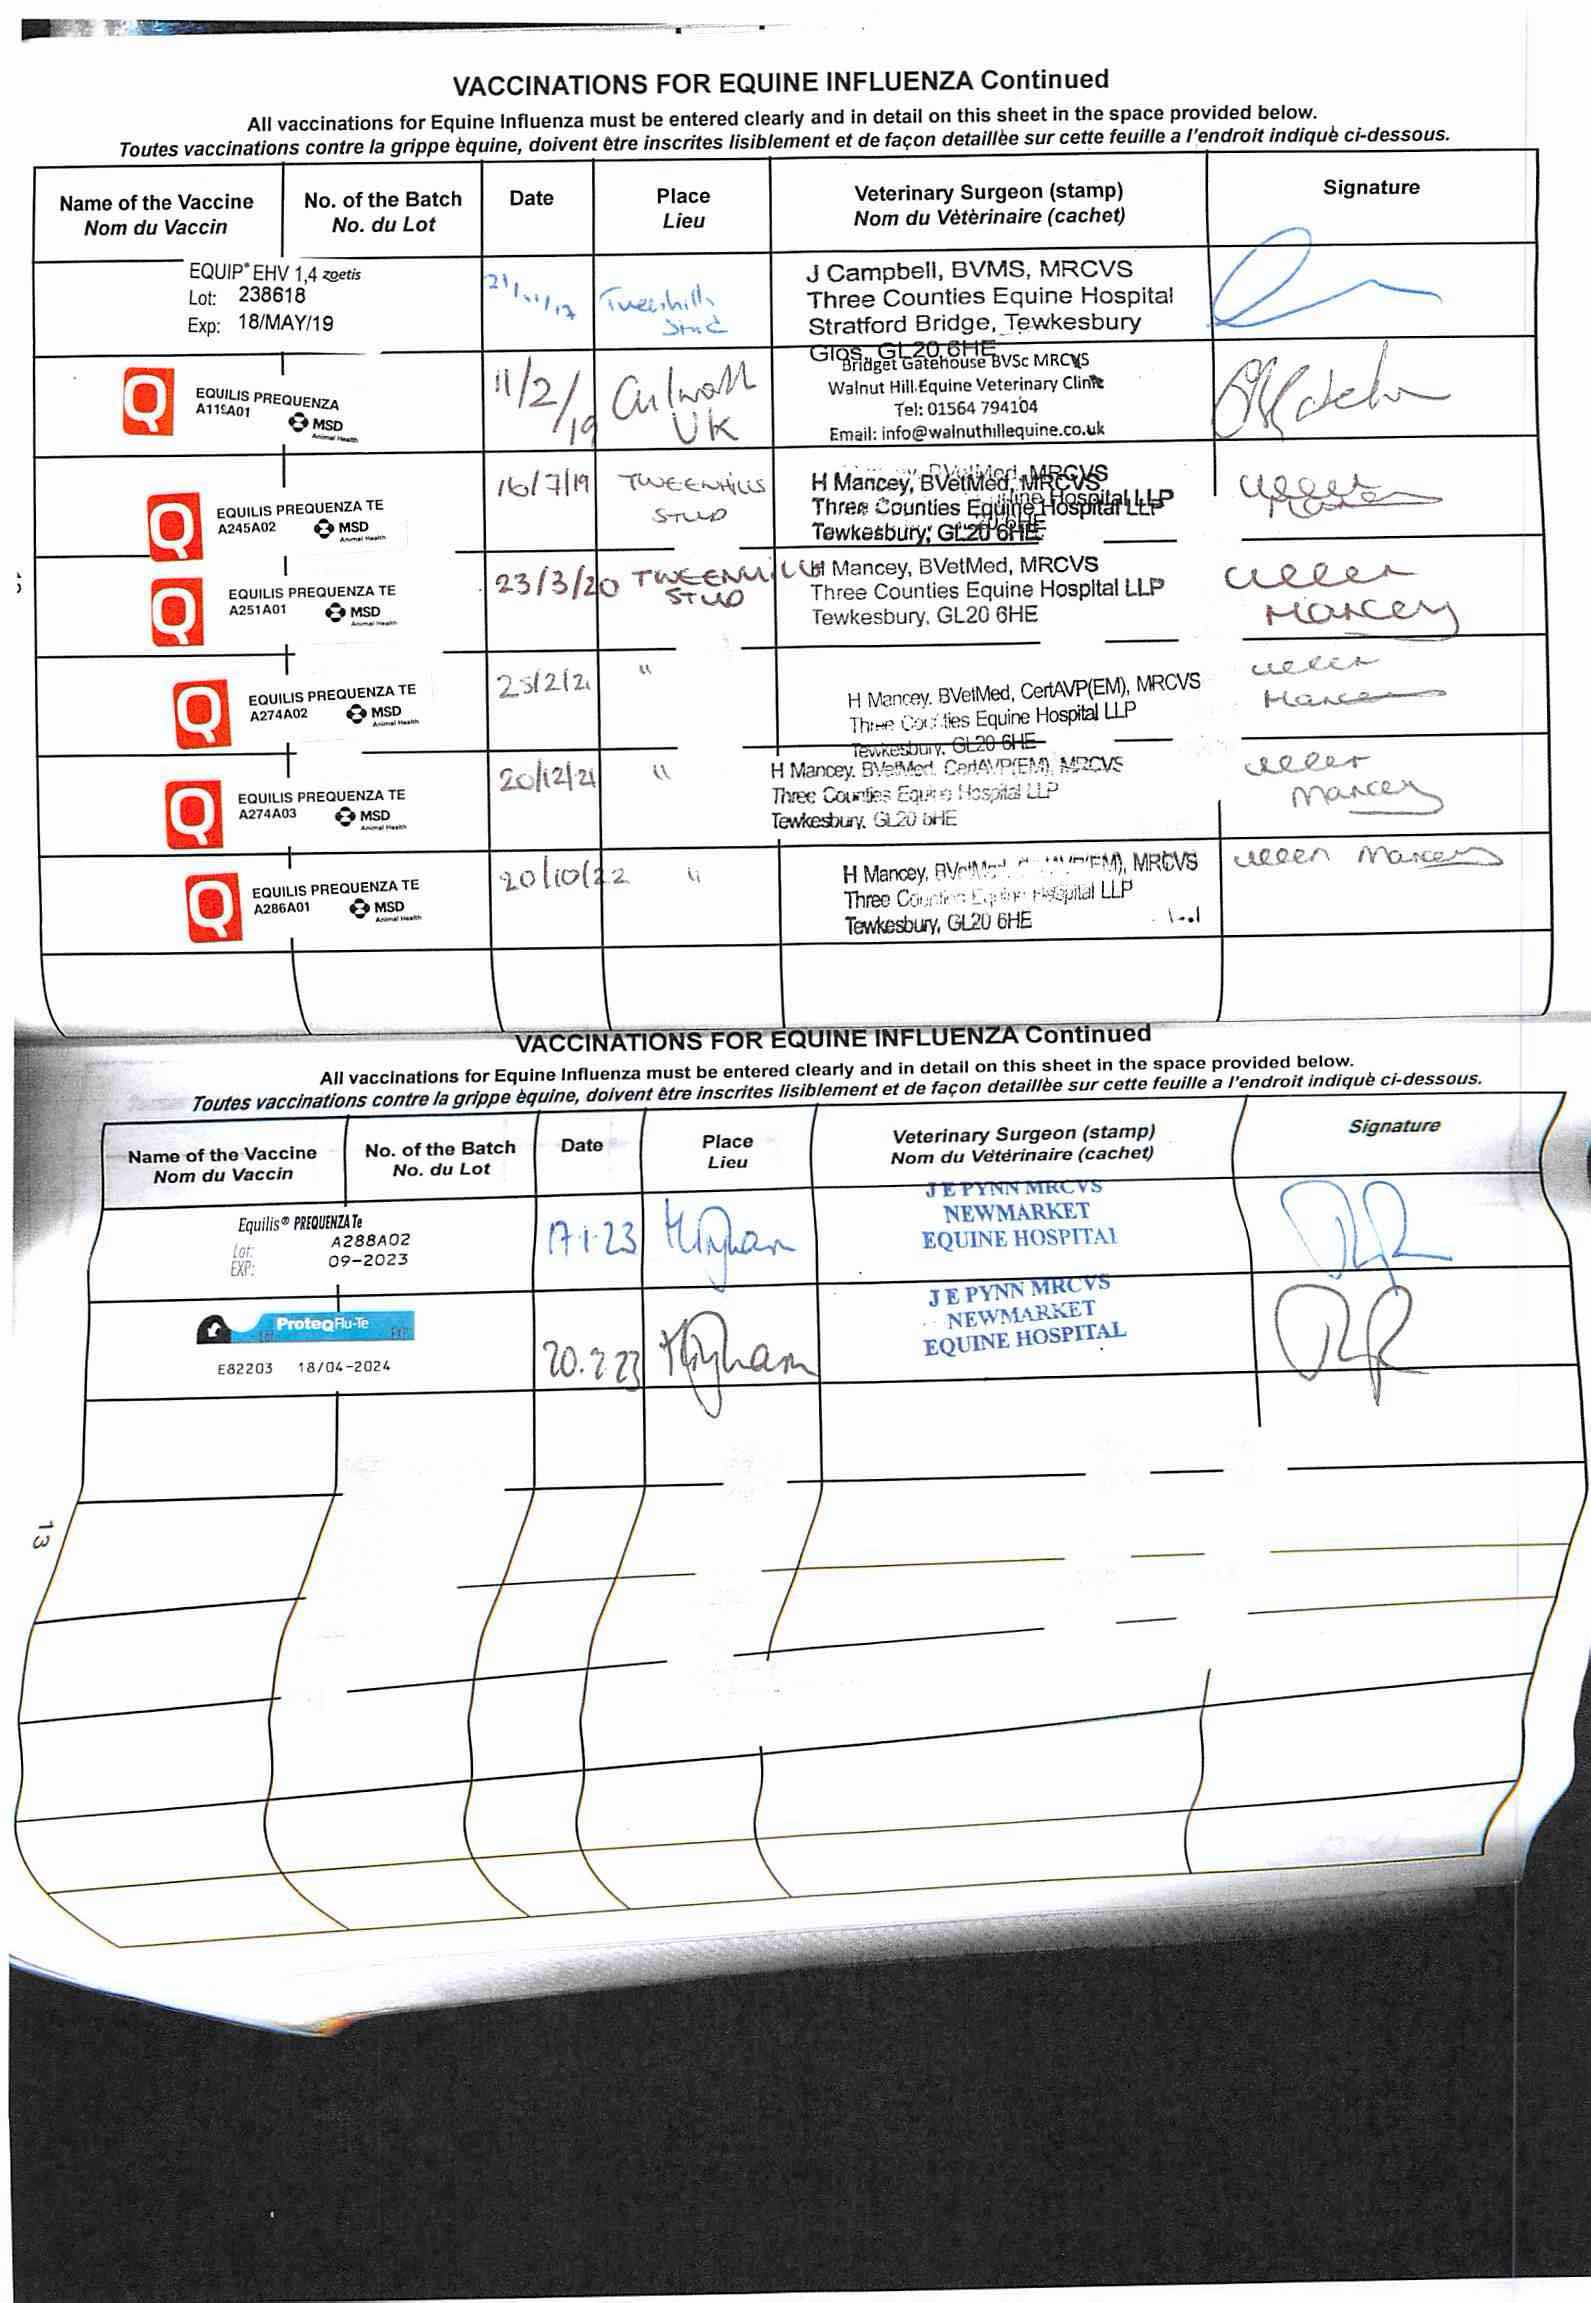 VACCINATIONS FOR EQUINE INFLUENZA Continued
All vaccinations for Equine Influenza must be entered clearly and in detail on this sheet in the space provided below.
Toutes vaccinations contre la grippe èquine, doivent être inscrites lisiblement et de façon detaillèe sur cette feuille a l'endroit indiquè ci-dessous.
Name of the Vaccine No. of the Batch Date Place Veterinary Surgeon (stamp) Signature
Nom du Vaccin No. du Lot Lieu Nom du Vètèrinaire (cachet)
EQUIP® EHV 1,4 zoetis
Lot: 238618
Exp: 18/MAY/19
Tweenhills
Stud
J Campbell, BVMS, MRCVS
Three Counties Equine Hospital
Stratford Bridge, Tewkesbury
Glos, GL20 6HE
Q EQUILIS PREQUENZA
A119A01 MSD
Animal Health
11/2/19
UK
Bridget Gatehouse BVSc MRCVS
Walnut Hill Equine Veterinary Clinic
Tel: 01564 794104
Email: info@walnuthillequine.co.uk
Q EQUILIS PREQUENZA TE
A245A02 MSD
Animal Health
16/7/19 TWEENHILLS
STUD
H Mancey, BVetMed, MRCVS
Three Counties Equine Hospital LLP
Tewkesbury, GL20 6HE
Q EQUILIS PREQUENZA TE
A251A01 MSD
Animal Health
23/3/20 TWEENHILLS
STUD
H Mancey, BVetMed, MRCVS
Three Counties Equine Hospital LLP
Tewkesbury, GL20 6HE
Helen
Mancey
Q EQUILIS PREQUENZA TE
A274A02 MSD
Animal Health
"
H Mancey. BVetMed, CertAVP(EM), MRCVS
Three Counties Equine Hospital LLP
Tewkesbury, GL20 6HE
Helen
Mancey
Q EQUILIS PREQUENZA TE
A274A03 MSD
Animal Health
20/12/21 "
H Mancey. BVetMed, CertAVP(EM), MRCVS
Three Counties Equine Hospital LLP
Tewkesbury, GL20 6HE
Helen
Mancey
Q EQUILIS PREQUENZA TE
A286A01 MSD
Animal Health
20/10/22 "
H Mancey, BVetMed, CertAVP(EM), MRCVS
Three Counties Equine Hospital LLP
Tewkesbury, GL20 6HE
Helen Mancey
VACCINATIONS FOR EQUINE INFLUENZA Continued
All vaccinations for Equine Influenza must be entered clearly and in detail on this sheet in the space provided below.
Toutes vaccinations contre la grippe èquine, doivent être inscrites lisiblement et de façon detaillèe sur cette feuille a l'endroit indiquè ci-dessous.
Name of the Vaccine No. of the Batch Date Place Veterinary Surgeon (stamp) Signature
Nom du Vaccin No. du Lot Lieu Nom du Vètèrinaire (cachet)
Equilis® PREQUENZA Te
Lot: A288A02
EXP: 09-2023
17-1-23 Higham
J E PYNN MRCVS
NEWMARKET
EQUINE HOSPITAL
ProteqFlu-Te
Lot EXP
E82203 18/04-2024
Higham
J E PYNN MRCVS
NEWMARKET
EQUINE HOSPITAL
13